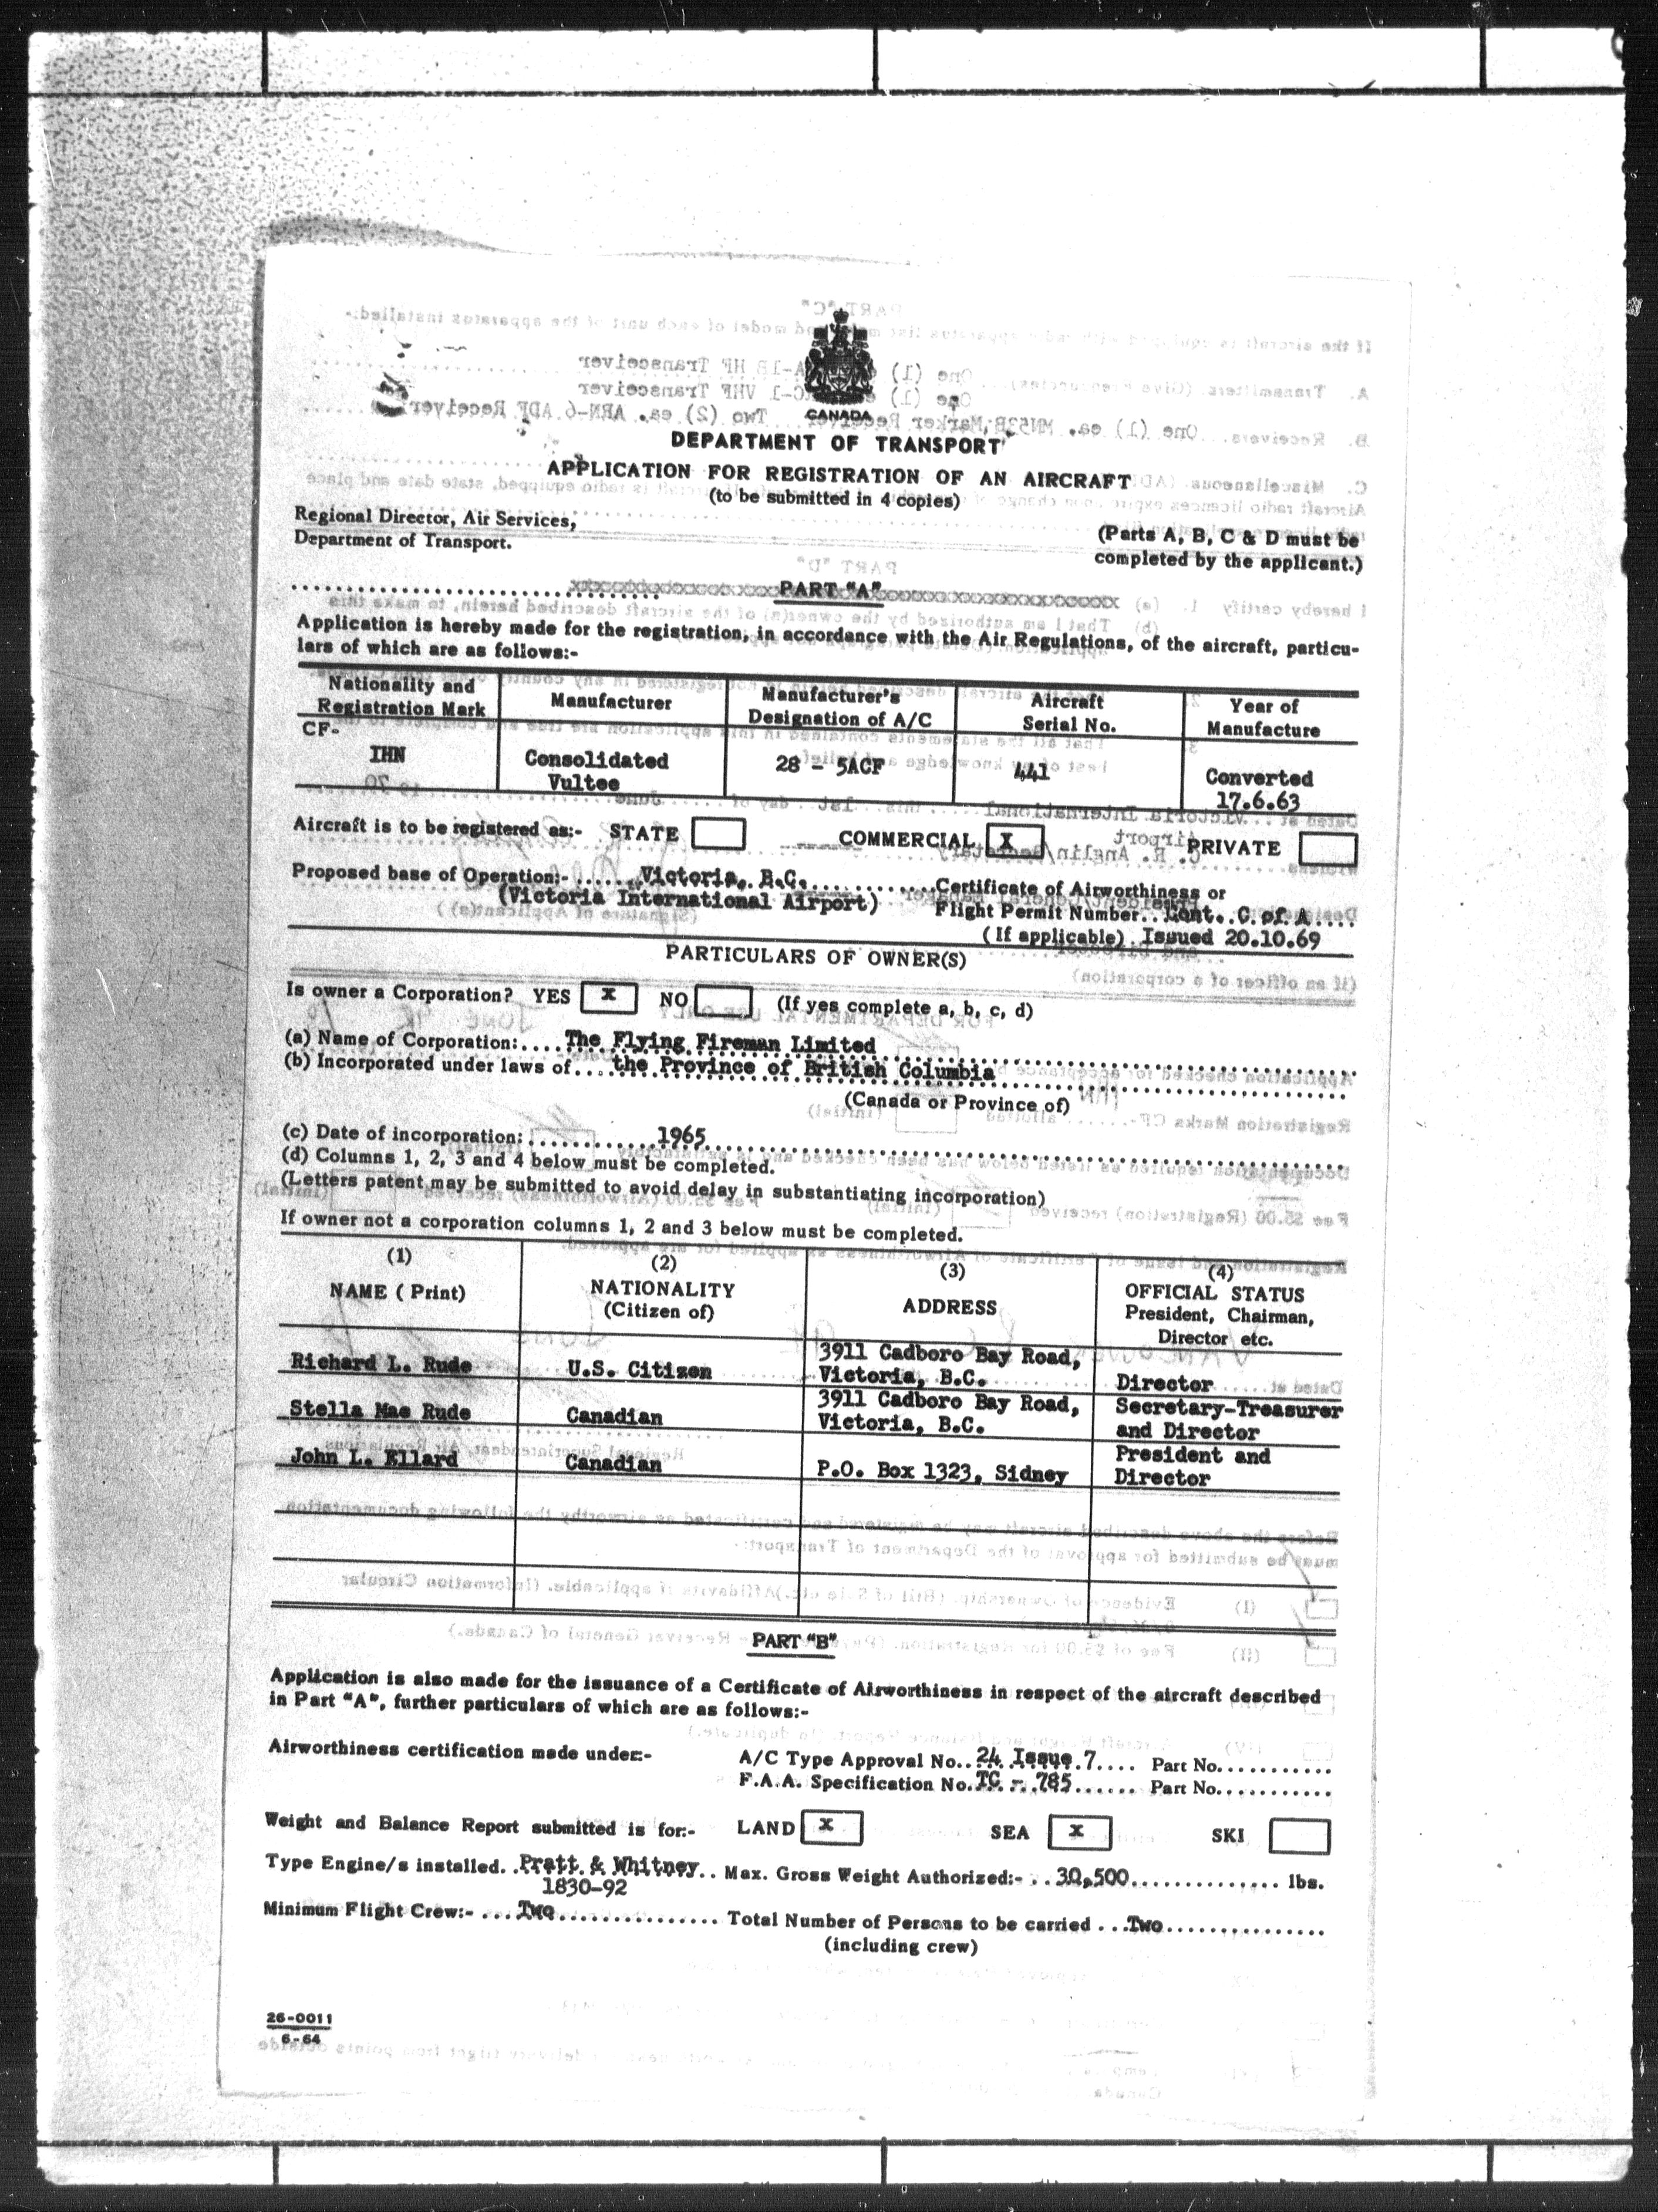 CANADA
DEPARTMENT OF TRANSPORT
APPLICATION FOR REGISTRATION OF AN AIRCRAFT
(to be submitted in 4 copies)
Regional Director, Air Services,
Department of Transport.
(Parts A, B, C & D must be
completed by the applicant.)
PART "A"
Application is hereby made for the registration, in accordance with the Air Regulations, of the aircraft, particu-
lars of which are as follows:-
Nationality and Registration Mark | Manufacturer | Manufacturer's Designation of A/C | Aircraft Serial No. | Year of Manufacture
CF- IHN | Consolidated Vultee | 28 - 5ACF | 441 | Converted 17.6.63
Aircraft is to be registered as:- STATE COMMERCIAL X PRIVATE
Proposed base of Operation:- ......Victoria, B.C.............Certificate of Airworthiness or
(Victoria International Airport) Flight Permit Number..Cont. C. of A....
(If applicable) Issued 20.10.69
PARTICULARS OF OWNER(S)
Is owner a Corporation? YES X NO (If yes complete a, b, c, d)
(a) Name of Corporation:....The Flying Fireman Limited
(b) Incorporated under laws of....the Province of British Columbia
(Canada or Province of)
(c) Date of incorporation:..............1965
(d) Columns 1, 2, 3 and 4 below must be completed.
(Letters patent may be submitted to avoid delay in substantiating incorporation)
If owner not a corporation columns 1, 2 and 3 below must be completed.
(1) NAME (Print) | (2) NATIONALITY (Citizen of) | (3) ADDRESS | (4) OFFICIAL STATUS President, Chairman, Director etc.
Richard L. Rude | U.S. Citizen | 3911 Cadboro Bay Road, Victoria, B.C. | Director
Stella Mae Rude | Canadian | 3911 Cadboro Bay Road, Victoria, B.C. | Secretary-Treasurer and Director
John L. Ellard | Canadian | P.O. Box 1323, Sidney | President and Director
PART "B"
Application is also made for the issuance of a Certificate of Airworthiness in respect of the aircraft described
in Part "A", further particulars of which are as follows:-
Airworthiness certification made under:- A/C Type Approval No..24 Issue 7.... Part No...........
F.A.A. Specification No.TC - 785...... Part No...........
Weight and Balance Report submitted is for:- LAND X SEA X SKI
Type Engine/s installed..Pratt & Whitney.. Max. Gross Weight Authorized:- ..30,500.............. lbs.
1830-92
Minimum Flight Crew:- ....Two............... Total Number of Persons to be carried ...Two...............
(including crew)
26-0011
6-64